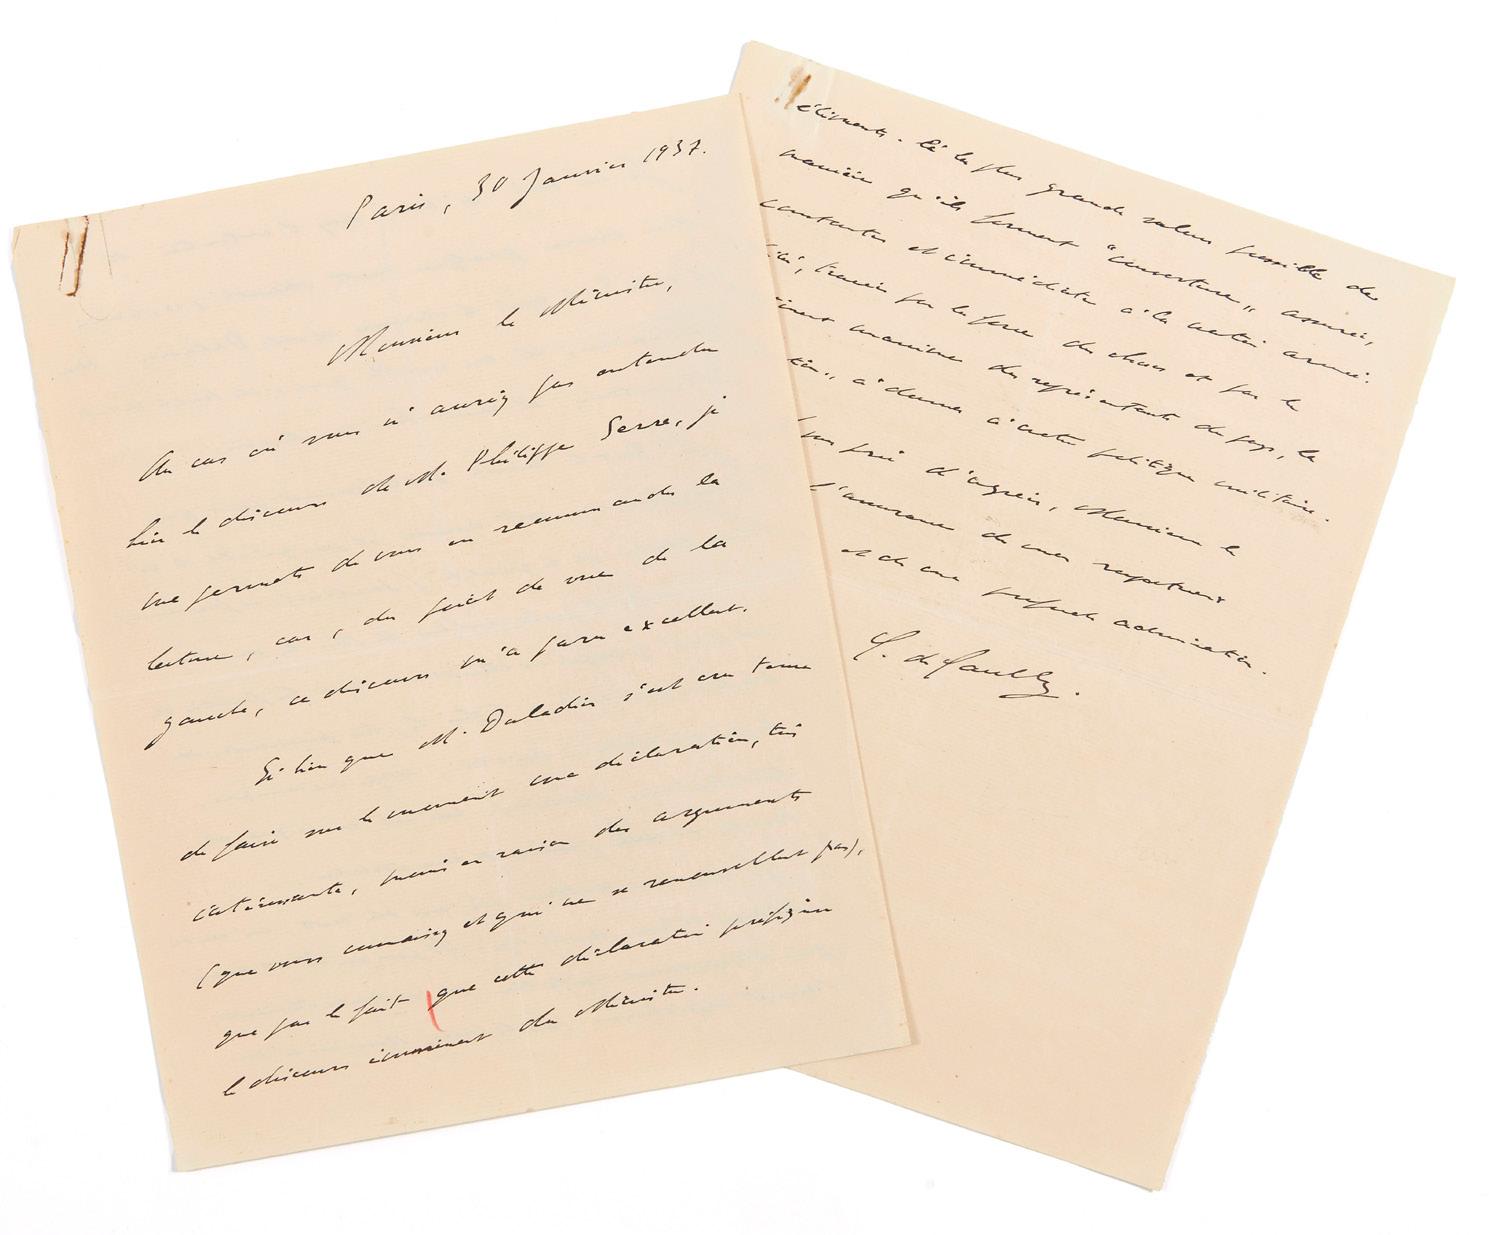 Paris, 30 Janvier 1937.
Monsieur le Ministre,
Au cas où vous n'auriez pas entendu
hier le discours de M. Philippe Serre, je
me permets de vous en recommander la
lecture, car, du point de vue de la
gauche, ce discours m'a paru excellent.
Si bien que M. Daladier s'est cru tenu
de faire sur le moment une déclaration, très
intéressante, moins en raison des arguments
(que vous connaissez et qui ne se renouvellent pas),
que par le fait que cette déclaration préfigure
le discours imminent du Ministre.
éléments. la plus grande valeur possible de
manière qu'ils forment "couverture" assurée,
constante et immédiate à la nation armée.
force des choses et par le
des représentants du pays, la
à donner à notre politique militaire.
prie d'agréer, Monsieur le
l'assurance de mes respectueux
et de ma profonde admiration.
C. de Gaulle.